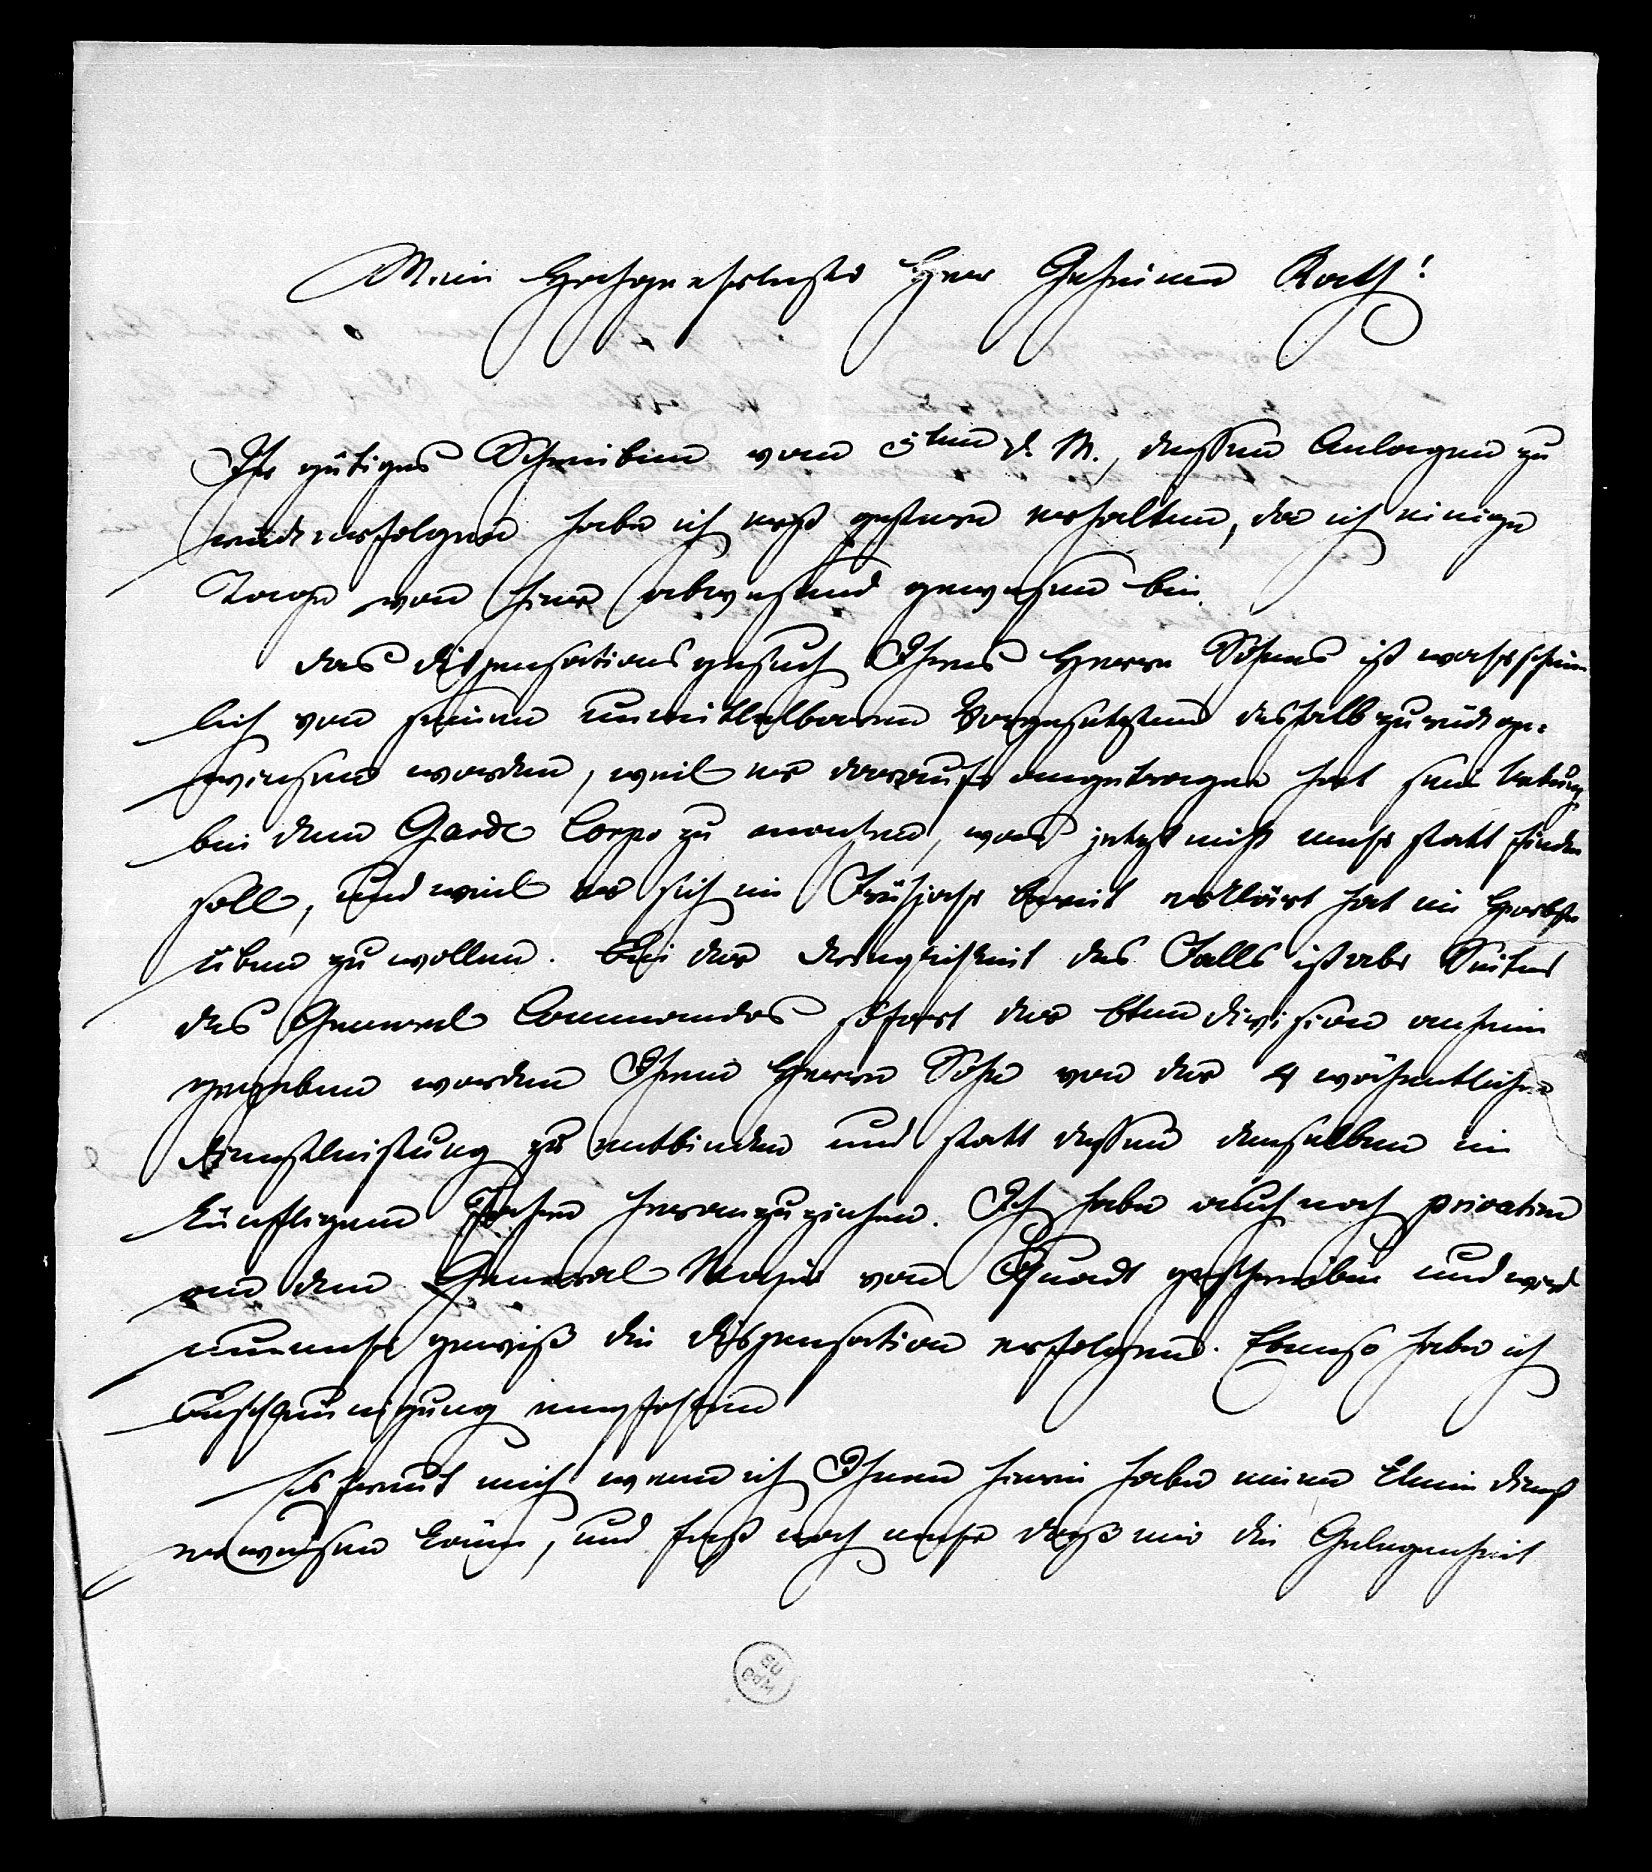 Mein Hochgeehrtester Herr Geheimer Rath!
Ihr gütiges Schreiben vom 5ten d. M., dessen Anlagen zu
rückerfolgen habe ich erst gestern erhalten, da ich einige
Tage von hier abwesend gewesen bin.
Das Dispensationsgesuch Ihres Herrn Sohnes ist wahrschein
lich von seinem unmittelbaren Vorgesetzten deshalb zurückge-
wiesen worden, weil er darauf angetragen hat seine Uebung
bei dem Garde Corps zu machen, was jetzt nicht mehr statt finden
soll, und weil er sich im Frühjahr bereit erklärt hat im Herbste
üben zu wollen. Bei der Dringlichkeit des Falls ist aber Seitens
des General Commandos sofort der 6ten Division anheim
gegeben worden Ihren Herrn Sohn von der 4 wöchentlichen
Dienstleistung zu entbinden und statt dessen denselben im
künftigen Jahre heranzuziehen. Ich habe auch noch privatim
an den General Major von Quadt geschrieben und wird
nunmehr gewiß die Dispensation erfolgen. Ebenso habe ich
Beschleunigung empfohlen
Es freut mich wenn ich Ihnen hierin habe einen kleinen Dienst
erweisen können, und fast noch mehr daß mir die Gelegenheit